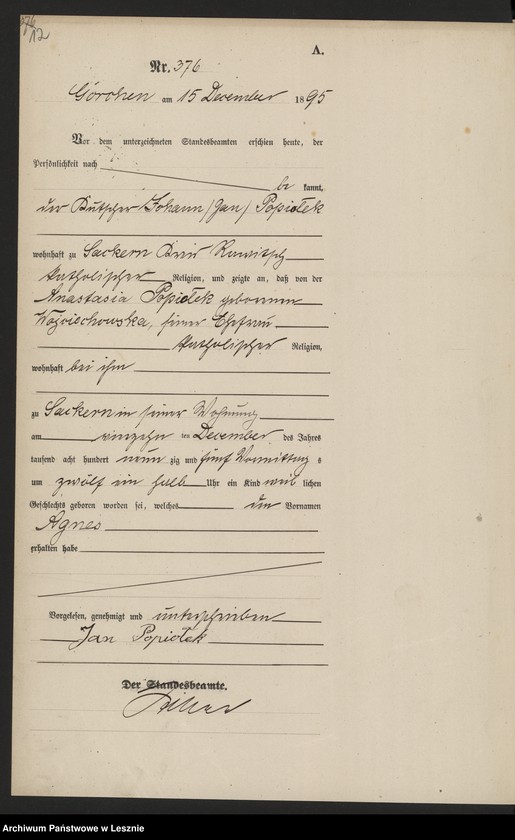 376
12
A.
Nr. 376
Görchen am 15 December 1895
Vor dem unterzeichneten Standesbeamten erschien heute, der
Persönlichkeit nach
be kannt,
der Kutscher Johann /Jan/ Popiołek
wohnhaft zu Sackern Kreis Rawitsch
katholischer Religion, und zeigte an, daß von der
Anastasia Popiołek geborenen
Wojciechowska, seiner Ehefrau
katholischer Religion,
wohnhaft bei ihm
zu Sackern in seiner Wohnung
am ten December des Jahres
tausend acht hundert neun zig und fünf Vormittag s
um zwölf ein halb Uhr ein Kind weib lichen
Geschlechts geboren worden sei, welches den Vornamen
Agnes
erhalten habe
Vorgelesen, genehmigt und unterschrieben
Jan Popiołek
Der Standesbeamte.
Archiwum Państwowe w Lesznie